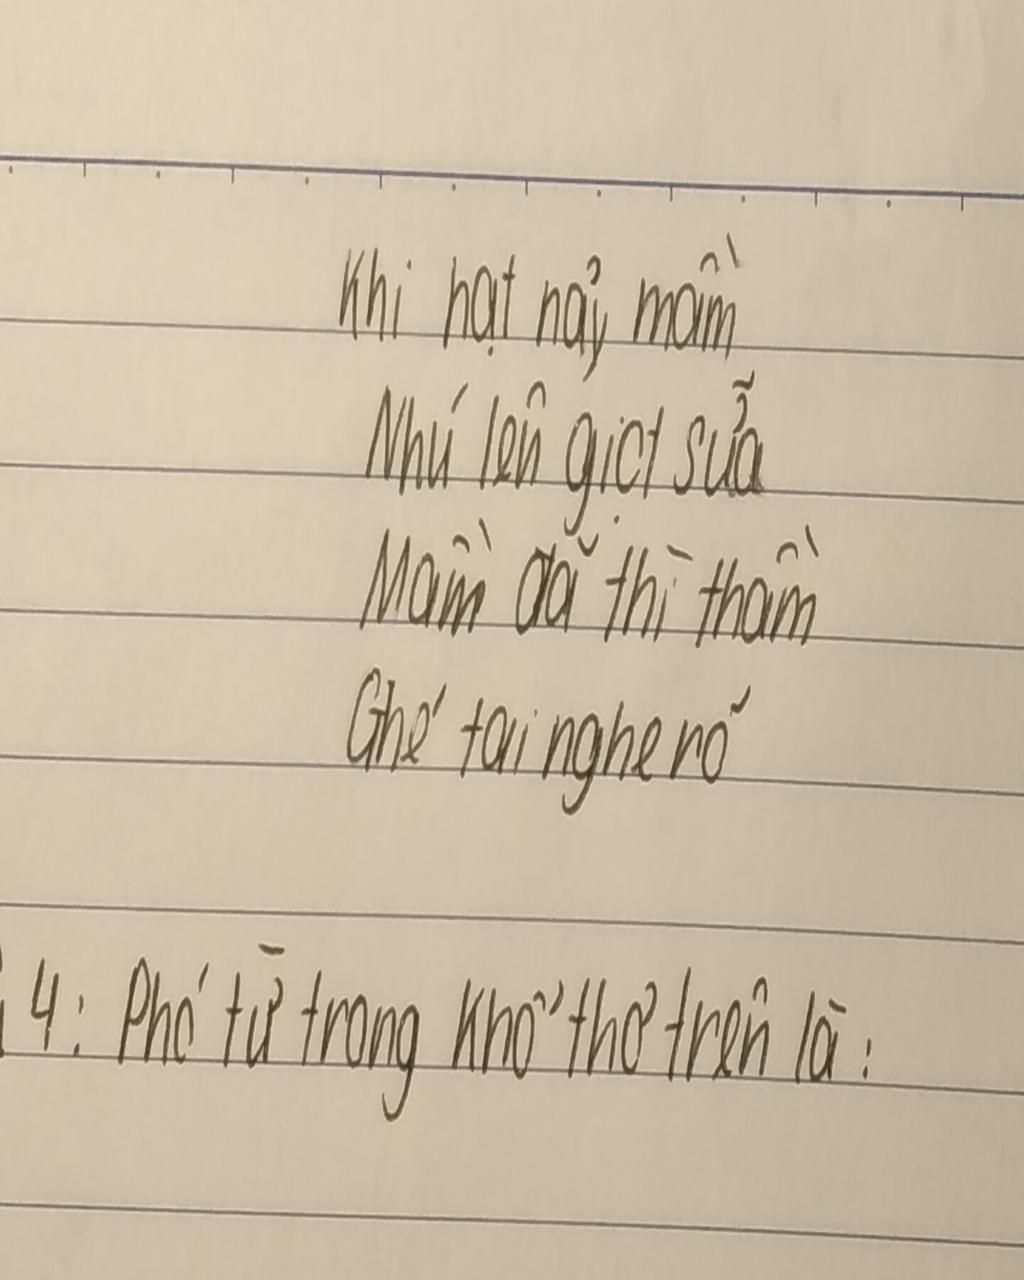 Khi hạt nảy mầm
Nhú lên giọt sữa
Mầm đã thì thầm
Ghé tai nghe rõ
4: Phó từ trong khổ thơ trên là: